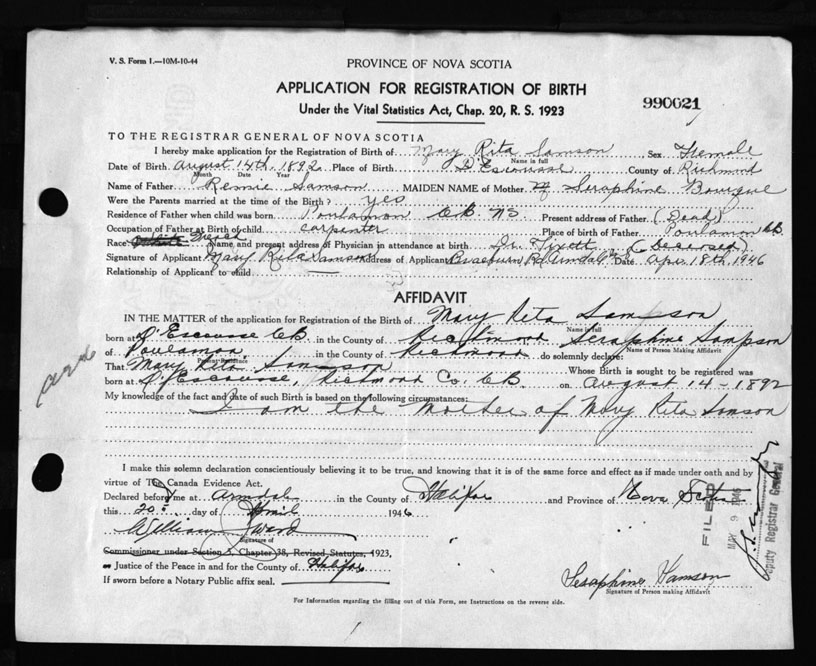 V. S. Form 1.—10M-10-44
PROVINCE OF NOVA SCOTIA
APPLICATION FOR REGISTRATION OF BIRTH
Under the Vital Statistics Act, Chap. 20, R. S. 1923
990621
TO THE REGISTRAR GENERAL OF NOVA SCOTIA
I hereby make application for the Registration of Birth of Mary Rita Samson Sex Female
Name in full
Date of Birth August 14th, 1892 Place of Birth D'Escousse County of Richmond
Month Date Year
Name of Father Remie Samson MAIDEN NAME of Mother Seraphine Bourque
Were the Parents married at the time of Birth? yes
Residence of Father when child was born Poulamon CB. NS Present address of Father (Dead)
Occupation of Father at Birth of child carpenter Place of birth of Father Poulamon CB
Race Name and present address of Physician in attendance at birth Dr. (Deceased)
Signature of Applicant Mary Rita Samson Address of Applicant Braeburn Rd Armdale Date Apr. 18th, 1946
Relationship of Applicant to child —
AFFIDAVIT
IN THE MATTER of the application for Registration of the Birth of Mary Rita Samson
Name in full
born at D'Escousse CB. in the County of Richmond Seraphine Sampson
Name of Person Making Affidavit
of Poulamon, in the County of Richmond do solemnly declare:
Present Residence
That Mary Rita Samson Whose Birth is sought to be registered was
born at D'Escousse, Richmond Co. CB. on August 14 - 1892
My knowledge of the fact and date of such Birth is based on the following circumstances:
I am the Mother of Mary Rita Samson
I make this solemn declaration conscientiously believing it to be true, and knowing that it is of the same force and effect as if made under oath and by
virtue of The Canada Evidence Act.
Declared before me at Armdale in the County of Halifax and Province of Nova Scotia
this 20 day of April 1946
William Ward
Signature of
Commissioner under Section 5, Chapter 38, Revised Statutes, 1923,
or Justice of the Peace in and for the County of Halifax
If sworn before a Notary Public affix seal.
FILED
MAY 9 1946
Deputy Registrar General
Seraphine Samson
Signature of Person making Affidavit
For Information regarding the filling out of this Form, see Instructions on the reverse side.